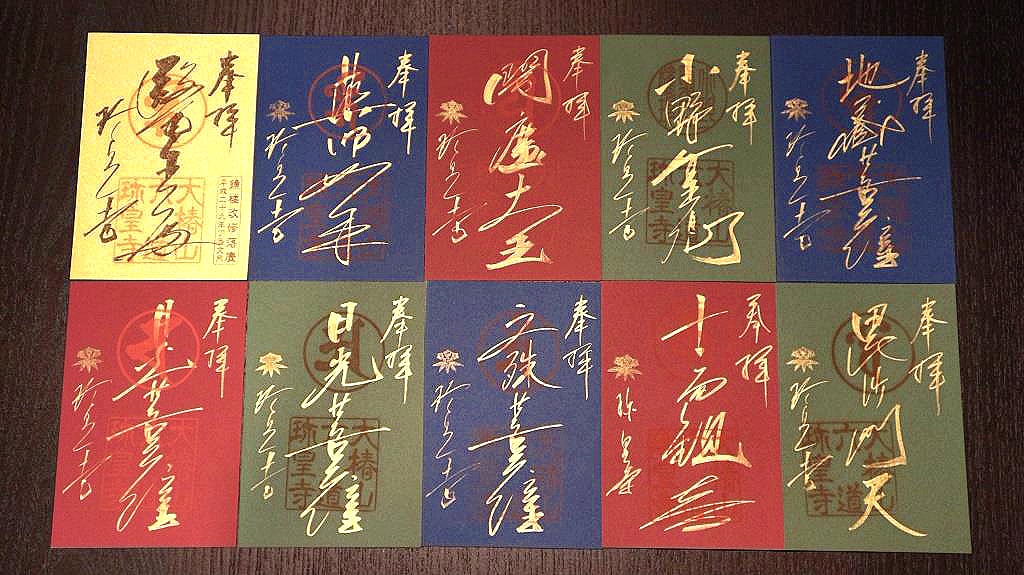 奉拝
珎皇寺
大椿山
六道
珎皇寺
鐘楼改修落慶
奉拝
薬師如来
珎皇寺
奉拝
閻魔大王
珎皇寺
奉拝
小野篁卿
珎皇寺
大椿山
六道
珎皇寺
奉拝
地蔵菩薩
珎皇寺
奉拝
月光菩薩
珎皇寺
奉拝
日光菩薩
珎皇寺
大椿山
六道
珎皇寺
奉拝
文殊菩薩
珎皇寺
奉拝
十一面観音
珎皇寺
奉拝
毘沙門天
珎皇寺
大椿山
六道
珎皇寺